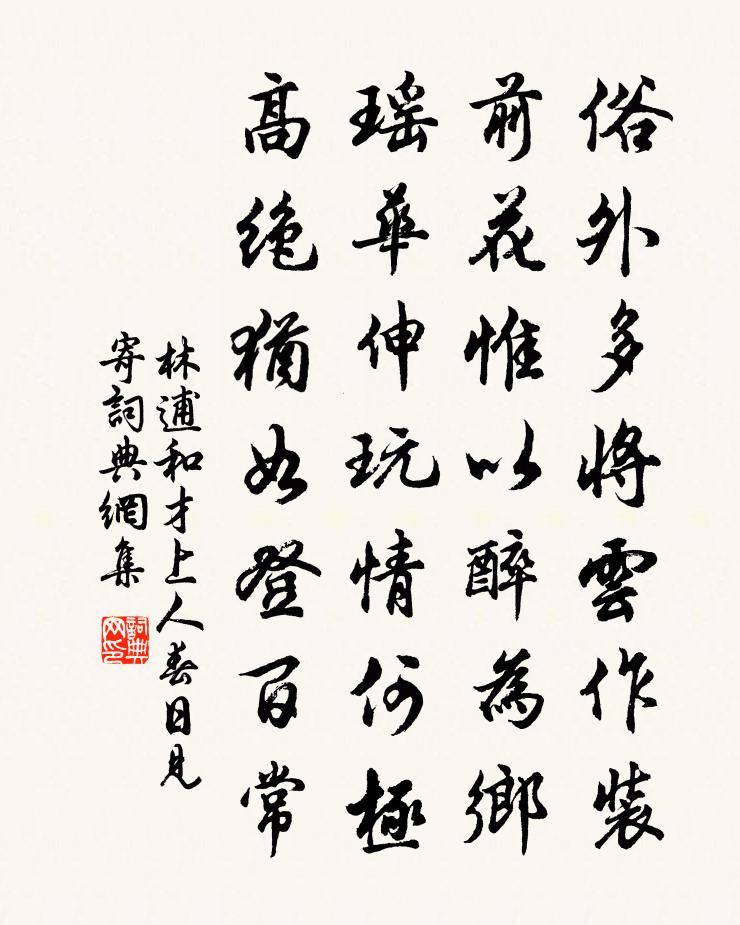 俗外多將雲作裝
前花惟以醉為鄉
瑶華伸玩情何極
高絕猶如登百常
林逋和才上人春日見
寄詞典網集
詞典
网印